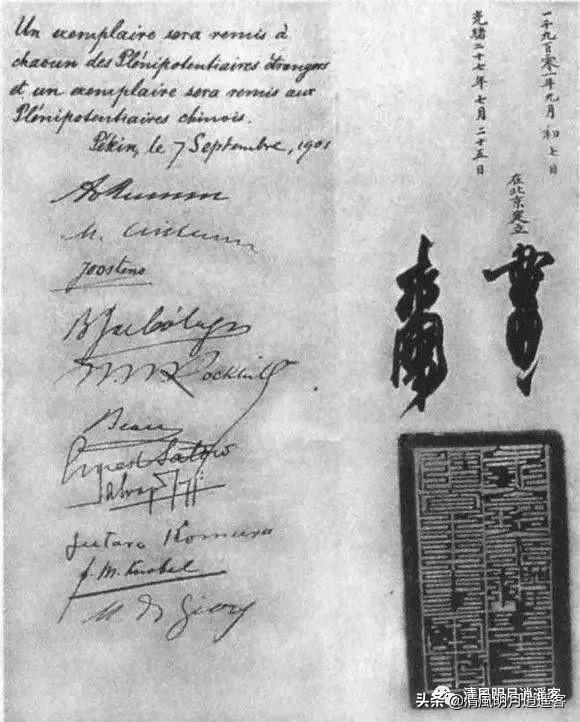 Un exemplaire sera remis à
chacun des Plénipotentiaires étrangers
et un exemplaire sera remis aux
Plénipotentiaires chinois.
Pékin, le 7 Septembre, 1901
Joostens
B J de Cólogan
W. W. Rockhill
Beau
Ernest Satow
Salvago Raggi
Jutaro Komura
F. M. Knobel
M de Giers
一千九百零一年九月初七日
光緒二十七年七月二十五日
在北京定立
清風明月逍遥客
头条 @清風明月逍遥客